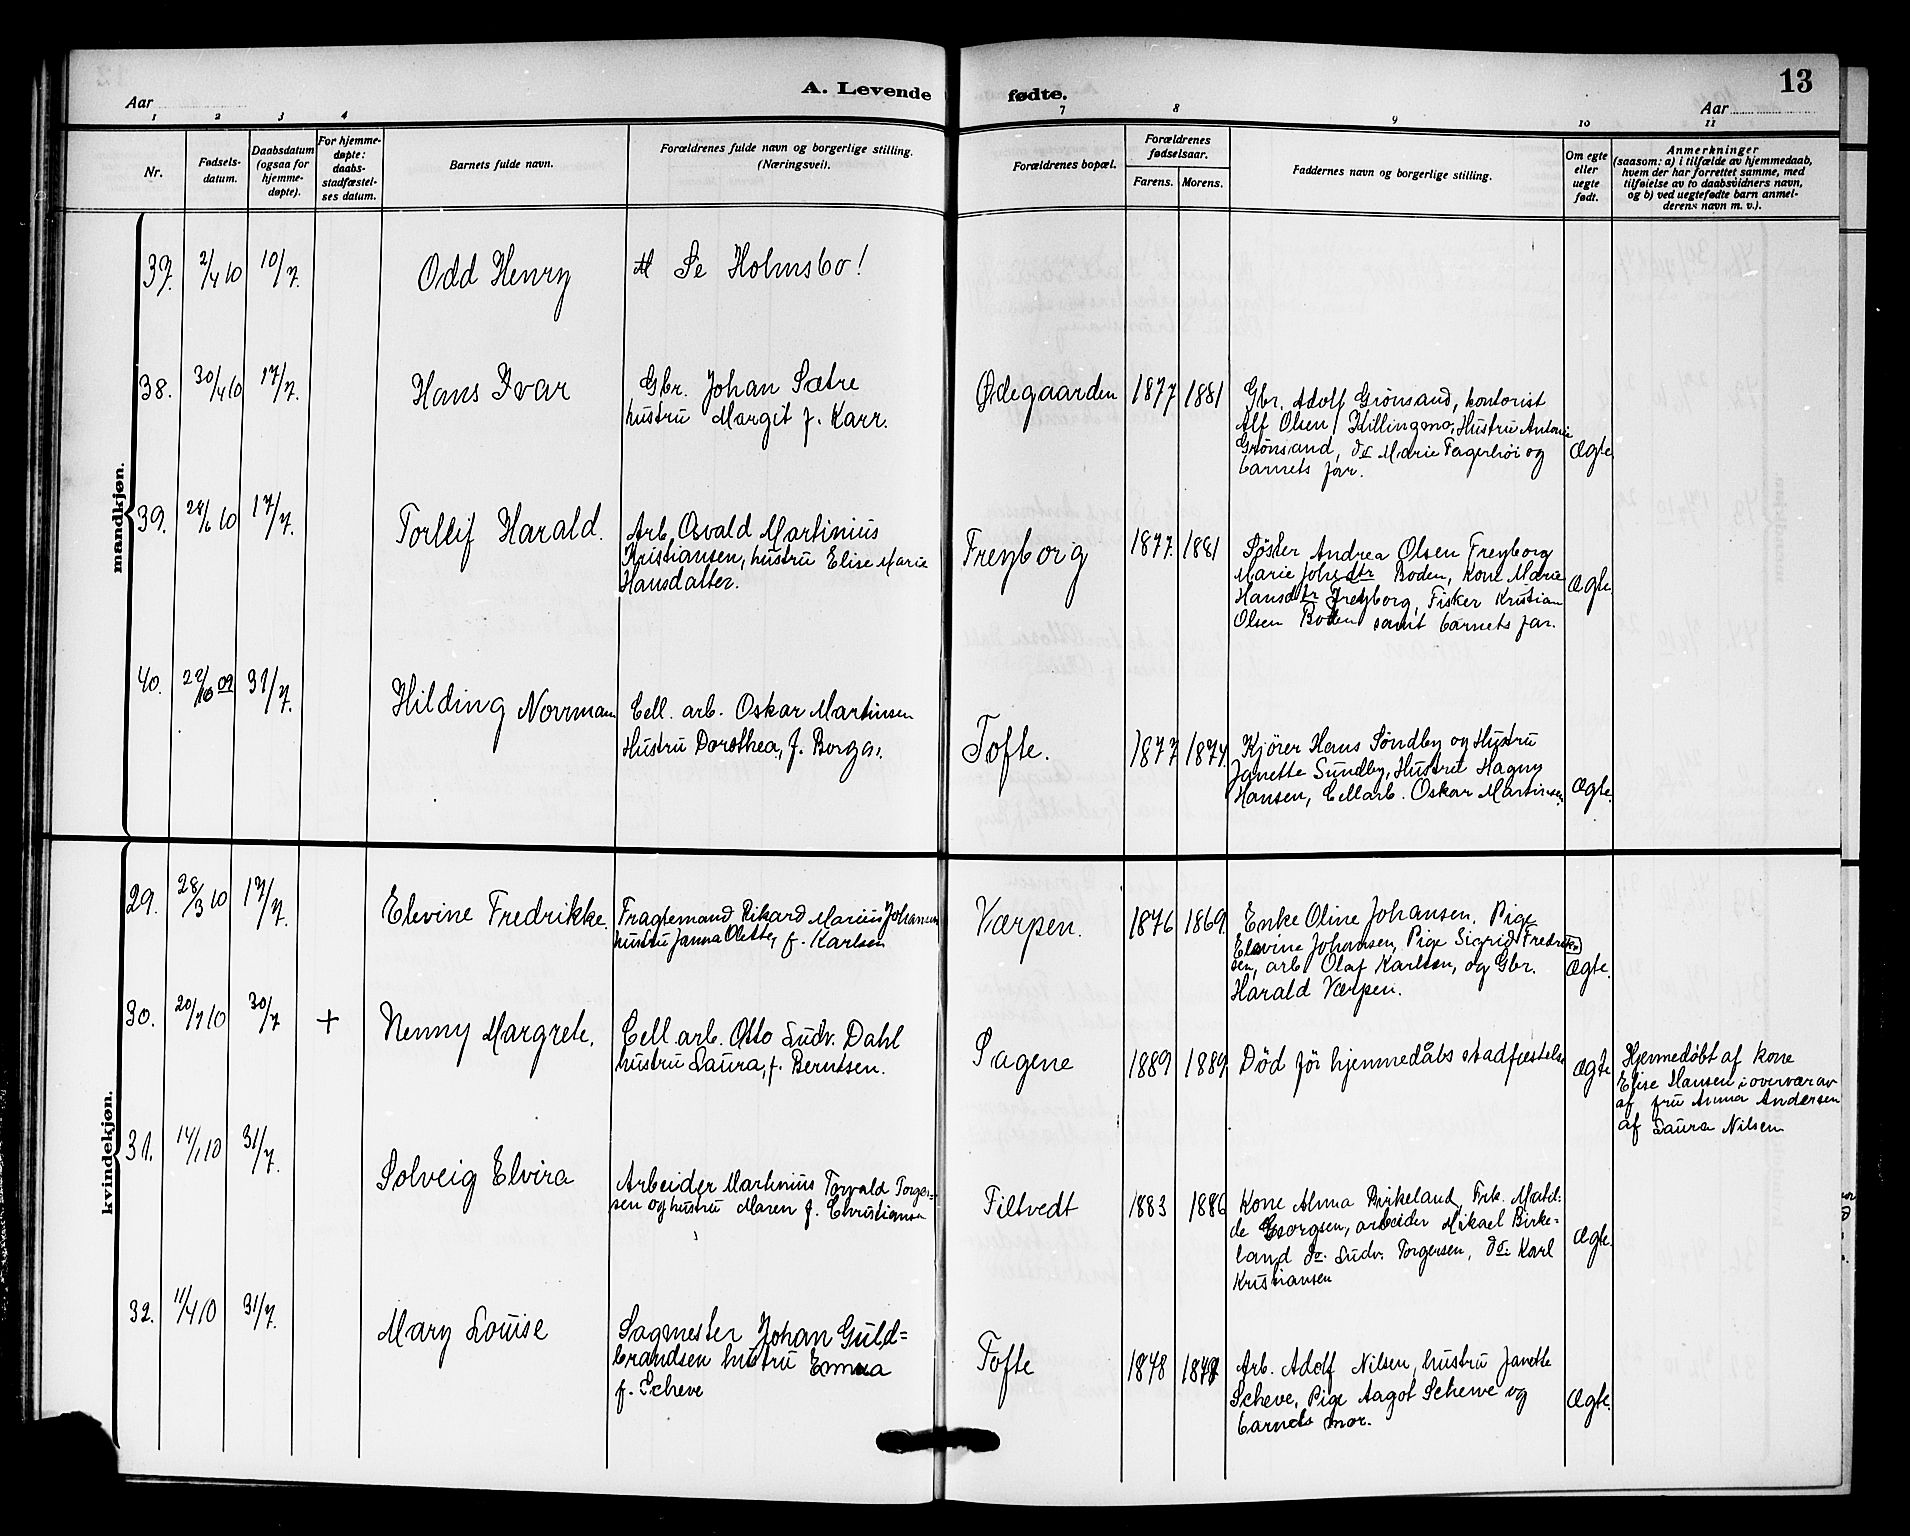 A. Levende fødte. 13
Aar Aar
1 2 3 4 7 8 9 10 11
Nr.
Fødsels-
datum.
Daabsdatum
(ogsaa for
hjemme-
døpte).
For hjemme-
døpte:
daabs-
stadfæstel-
ses datum.
Barnets fulde navn.
Forældrenes fulde navn og borgerlige stilling.
(Næringsvei).
Forældrenes bopæl.
Forældrenes
fødselsaar.
Farens. Morens.
Faddernes navn og borgerlige stilling.
Om egte
eller
uegte
født.
Anmerkninger
(saasom: a) i tilfælde av hjemmedaab,
hvem der har forrettet samme, med
tilføielse av to daabsvidners navn,
og b) ved uegtefødte barn anmel-
derens navn m. v.).
mandkjøn.
37. 2/4 10 10/7. Odd Henry Se Holmsbo!
38. 30/4 10 17/7. Hans Ivar
Gbr. Johan Sætre
hustru Margit f. Karr.
Ødegaarden 1877 1881
Gbr. Adolf Grønsand, kontorist
Alf Olsen Killingmo, Hustru Antonie
Grønsand, do Marie Fagerhøi og
barnets far.
Ægte
39. 28/6 10 17/7. Torleif Harald.
Arb. Osvald Martinius
Kristiansen, hustru Elise Marie
Hansdatter.
Freyborg 1877. 1881
Søster Andrea Olsen Freyborg
Marie Johsdtr Boden, Kone Marie
Hansdtr Freyborg, Fisker Kristian
Olsen Boden samt barnets far.
Ægte
40. 22/10 09 31/7. Hilding Norrmann
Cell. arb. Oskar Martinsen
Hustru Dorothea, f. Borge.
Tofte. 1877 1874.
Kjører Hans Sundby og Hustru
Janette Sundby, Hustru Hagny
Hansen, Cellarb. Oskar Martinsen
Ægte.
kvindekjøn.
29. 28/3 10 17/7. Elevine Fredrikke.
Fragtemand Rikard Marius Johansen
hustru Janna Olette, f. Karlsen
Værpen. 1876 1869.
Enke Oline Johansen, Pige
Elevine Johansen, Pige Sigrid Fredrik-
sen, arb Olaf Karlsen, og Gbr.
Harald Værpen.
Ægte.
30. 20/7 10 30/7 + Nenny Margrete.
Cell. arb. Otto Ludv. Dahl
hustru Laura, f. Berntsen.
Sagene 1889 1889.
Død før hjemmedåbs stadfæstelse
Ægte
Hjemmedøbt af kone
Elise Hansen i overvær av
af fru Anna Andersen
af Laura Nilsen
31. 14/1 10 31/7. Solveig Elvira
Arbeider Martinius Torvald Torger=
sen og hustru Maren f. Christiansen
Filtvedt 1883 1886
Kone Anna Birkeland, Frk. Matil-
de Georgsen, arbeider Mikael Birke=
land do. Ludv. Torgersen, do. Karl
Kristiansen
Ægte.
32. 11/4 10 31/7. Mary Louise
Sagmester Johan Guld=
brandsen hustru Emma
f. Scheve
Tofte 1848
Arb. Adolf Nilsen, hustru Janette
Scheve, Pige Aagot Scheve og
barnets mor.
Ægte.